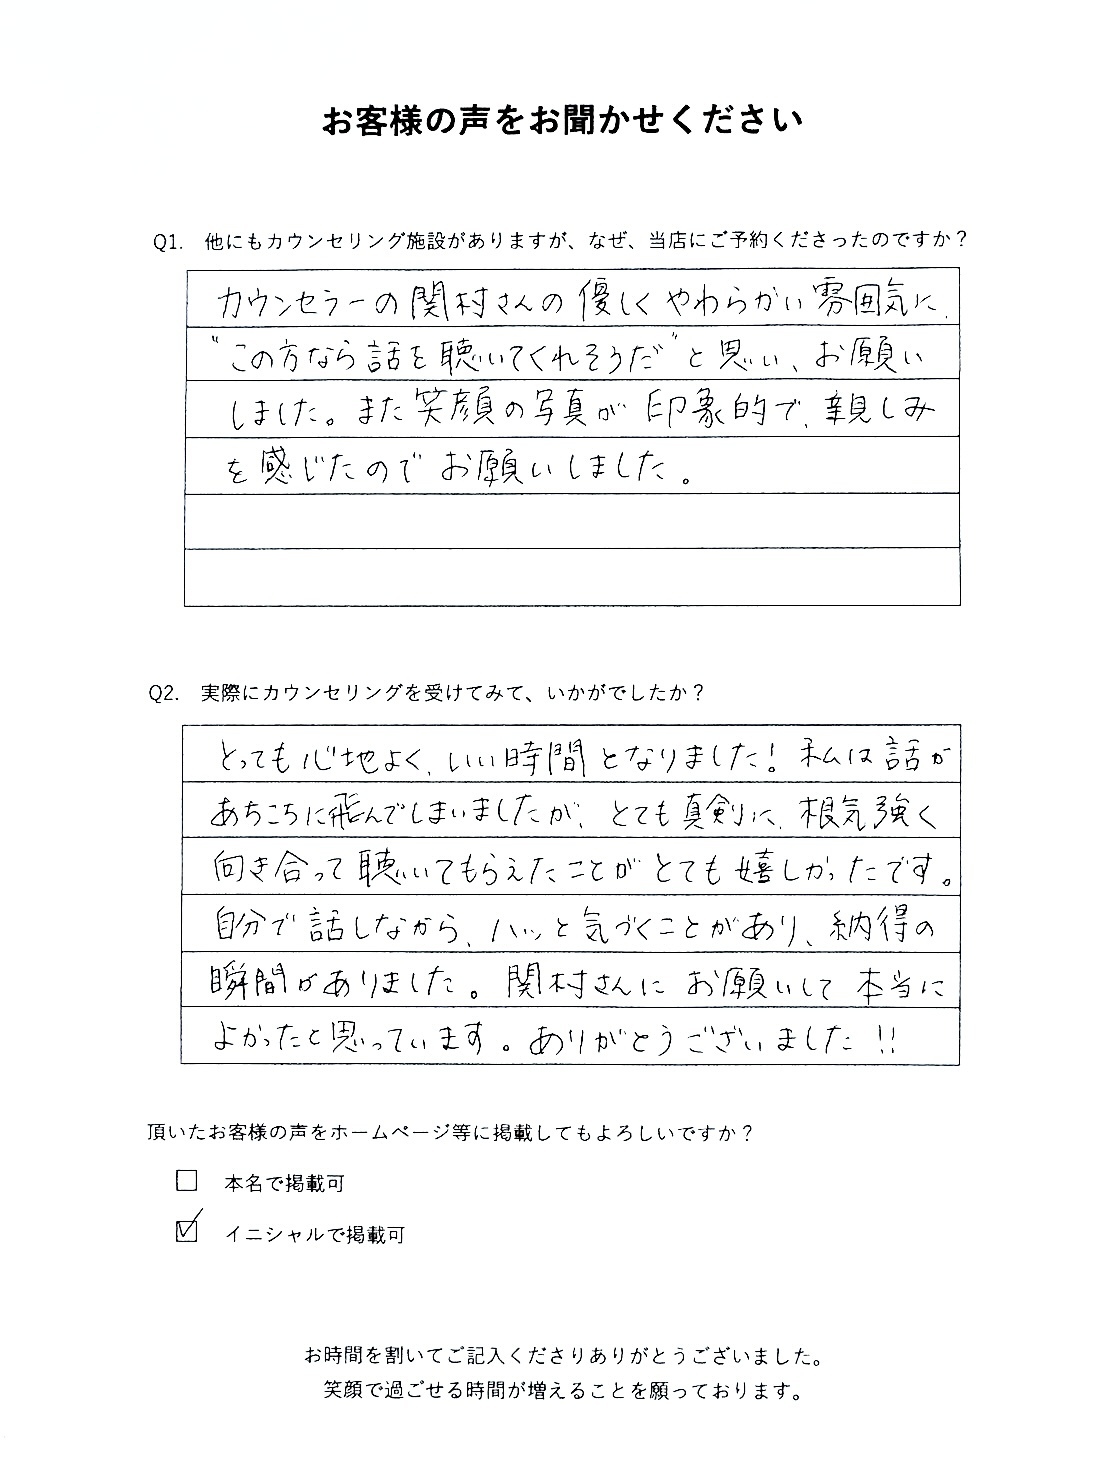 お客様の声をお聞かせください
Q1. 他にもカウンセリング施設がありますが、なぜ、当店にご予約くださったのですか？
カウンセラーの関村さんの優しくやわらかい雰囲気に、
“この方なら話を聴いてくれそうだ”と思い、お願い
しました。また笑顔の写真が印象的で、親しみ
を感じたのでお願いしました。
Q2. 実際にカウンセリングを受けてみて、いかがでしたか？
とっても心地よく、いい時間となりました！私は話が
あちこちに飛んでしまいましたが、とても真剣に、根気強く
向き合って聴いてもらえたことがとても嬉しかったです。
自分で話しながら、ハッと気づくことがあり、納得の
瞬間がありました。関村さんにお願いして本当に
よかったと思っています。ありがとうございました!!
頂いたお客様の声をホームページ等に掲載してもよろしいですか？
本名で掲載可
イニシャルで掲載可
お時間を割いてご記入くださりありがとうございました。
笑顔で過ごせる時間が増えることを願っております。